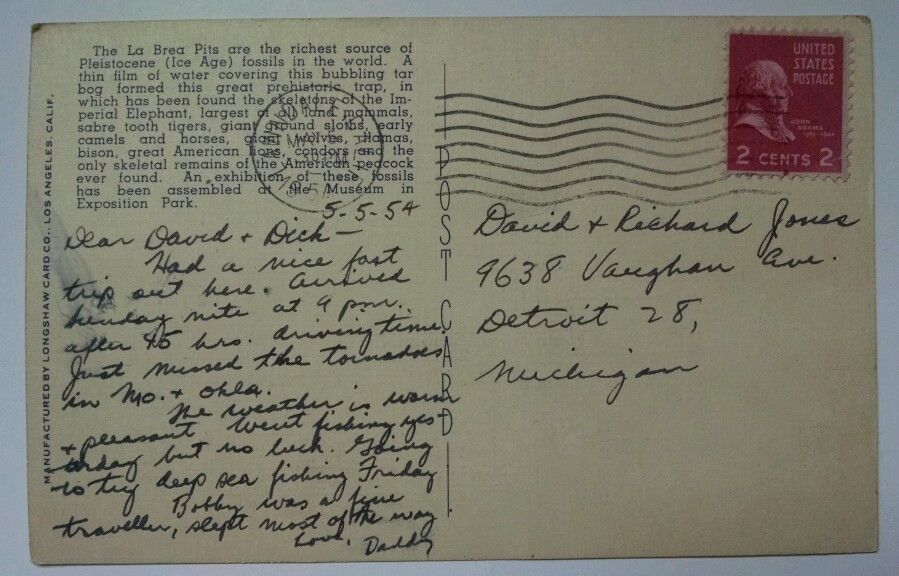 The La Brea Pits are the richest source of
Pleistocene (Ice Age) fossils in the world. A
thin film of water covering this bubbling tar
bog formed this great prehistoric trap, in
which has been found the skeletons of the Im-
perial Elephant, largest of all land mammals,
sabre tooth tigers, giant ground sloths, early
camels and horses, giant wolves, llamas,
bison, great American lions, condors and the
only skeletal remains of the American peacock
ever found. An exhibition of these fossils
has been assembled at the Museum in
Exposition Park.
MANUFACTURED BY LONGSHAW CARD CO., LOS ANGELES, CALIF.
5-5-54
Dear David + Dick—
Had a nice fast
trip out here. Arrived
Sunday nite at 9 pm.
after 45 hrs. driving time.
Just missed the tornadoes
in Mo. + Okla.
The weather is warm
+ pleasant. Went fishing yes-
terday but no luck. Going
to try deep sea fishing Friday
Bobby was a fine
traveller, slept most of the way
Love, Daddy
POST CARD
UNITED
STATES
POSTAGE
JOHN
ADAMS
2 CENTS 2
David + Richard Jones
9638 Vaughan Ave.
Detroit 28,
Michigan